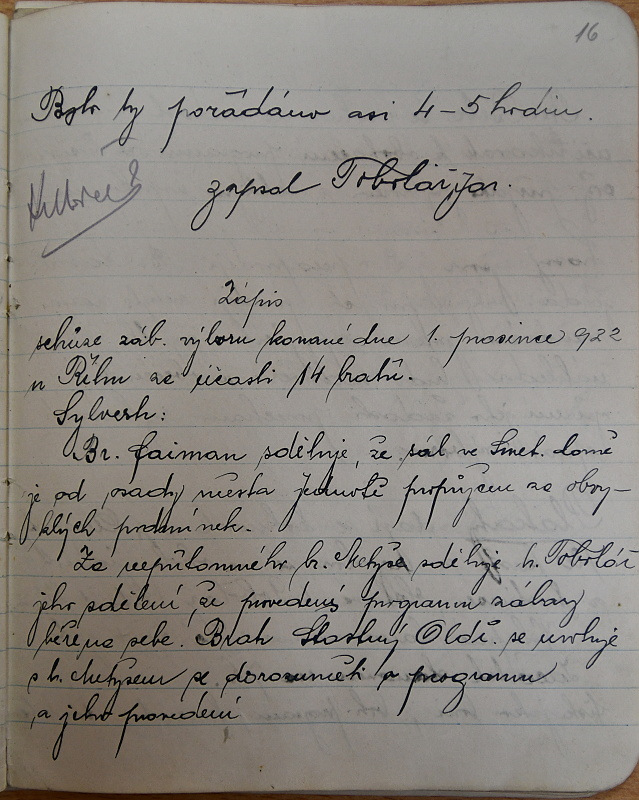 16
Bylo by pořádáno asi 4-5 hodin.
zapsal Tobolář Jar.
Zápis
schůze záb. výboru konané dne 1. prosince 922
u Říhu za účasti 14 bratů.
Sylvestr:
Br. Faiman sděluje, že sál ve Smet. domě
je od osady města jednotě propůjčen za obvy-
klých podmínek.
Za nepřítomného br. Metyše sděluje b. Tobolář
jeho sdělení, že provedení programu zábavy
béře na sebe. Bratr Šťastný Oldř. se uvoluje
s b. Metyšem se dorozuměti o programu
a jeho provedení